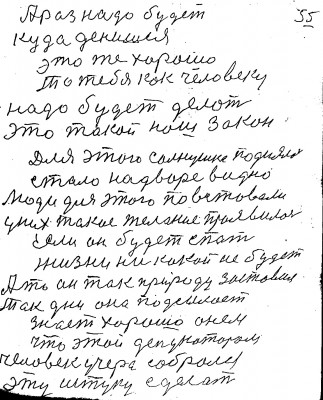 55
А раз надо будет
куда денишся
это те хорошо
То тебя как человеку
надо будет делот
Это такой нош Закон
Для этого солнушко поднялос
стало надворе видно
Люди для этого повставали
у них такое желание появилос
если он будет спат
жизни ни какой не будет
А то он так природу заставил
Так дни она подсилает
знает хорошо о нем
что этой
человек учера собролся
эту штуку сделат